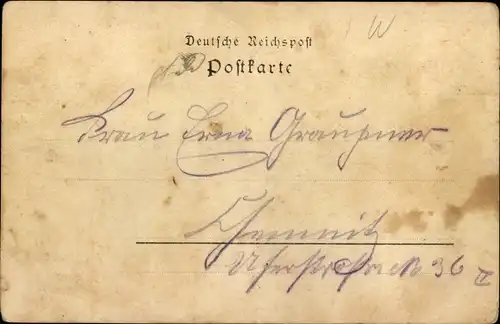 W
Deutsche Reichspost
Postkarte
Frau Erna Graupner
Chemnitz
Uferstrasse 36 I